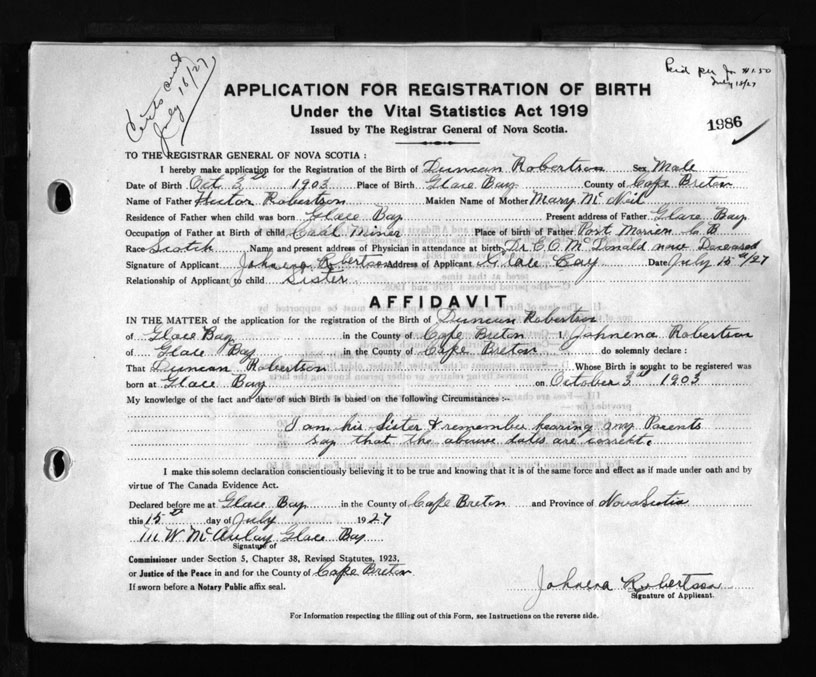 Certs and
July 18/27
Paid per Jr $1.50
July 18/27
APPLICATION FOR REGISTRATION OF BIRTH
Under the Vital Statistics Act 1919
Issued by The Registrar General of Nova Scotia.
1986
TO THE REGISTRAR GENERAL OF NOVA SCOTIA :
I hereby make application for the Registration of the Birth of Duncan Robertson Sex Male
Date of Birth Oct 3rd 1903 Place of Birth Glace Bay County of Cape Breton
Name of Father Hector Robertson Maiden Name of Mother Mary McNeil
Residence of Father when child was born Glace Bay Present address of Father Glace Bay
Occupation of Father at Birth of child Coal Miner Place of Birth of Father Port Morien C B
Race Scotch Name and present address of Physician in attendance at birth Dr C.O. McDonald now Deceased
Signature of Applicant Johnena Robertson Address of Applicant Glace Bay Date July 15th/27
Relationship of Applicant to child Sister
AFFIDAVIT
IN THE MATTER of the application for the registration of the Birth of Duncan Robertson
of Glace Bay in the County of Cape Breton I Johnena Robertson
of Glace Bay in the County of Cape Breton do solemnly declare :
That Duncan Robertson Whose Birth is sought to be registered was
born at Glace Bay on October 3d 1903
My knowledge of the fact and date of such Birth is based on the following Circumstances :-
I am his Sister & remember hearing my Parents
say that the above dates are correct.
I make this solemn declaration conscientiously believing it to be true and knowing that it is of the same force and effect as if made under oath and by
virtue of The Canada Evidence Act.
Declared before me at Glace Bay in the County of Cape Breton and Province of Nova Scotia
this 15th day of July 1927
M. W. McAulay Glace Bay
Signature of
Commissioner under Section 5, Chapter 38, Revised Statutes, 1923.
or Justice of the Peace in and for the County of Cape Breton
If sworn before a Notary Public affix seal.
Johnena Robertson
Signature of Applicant.
For Information respecting the filling out of this Form, see Instructions on the reverse side.